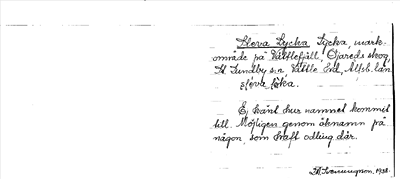 Sleva Lycka Lycka, mark-
område på Vättlefjäll, Öjareds skog,
St. Lundby s:n Vättle hd, Älfsb. län
sléva lĕka.
Ej känt hur namnet kommit
till. Möjligen genom öknamn på
någon, som haft odling där.
1938.